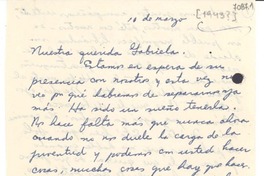 7087.1
10 de marzo [1949?]
Nuestra querida Gabriela.
Estamos en espera de su
presencia con nosotros y esta vez no
veo por qué habremos de separarnos ya
más. Ha sido un sueño tenerla.
Nos hace falta más que nunca ahora
cuando no nos duele la carga de la
juventud y podemos con usted hacer
cosas, muchas cosas que hay por hacer.